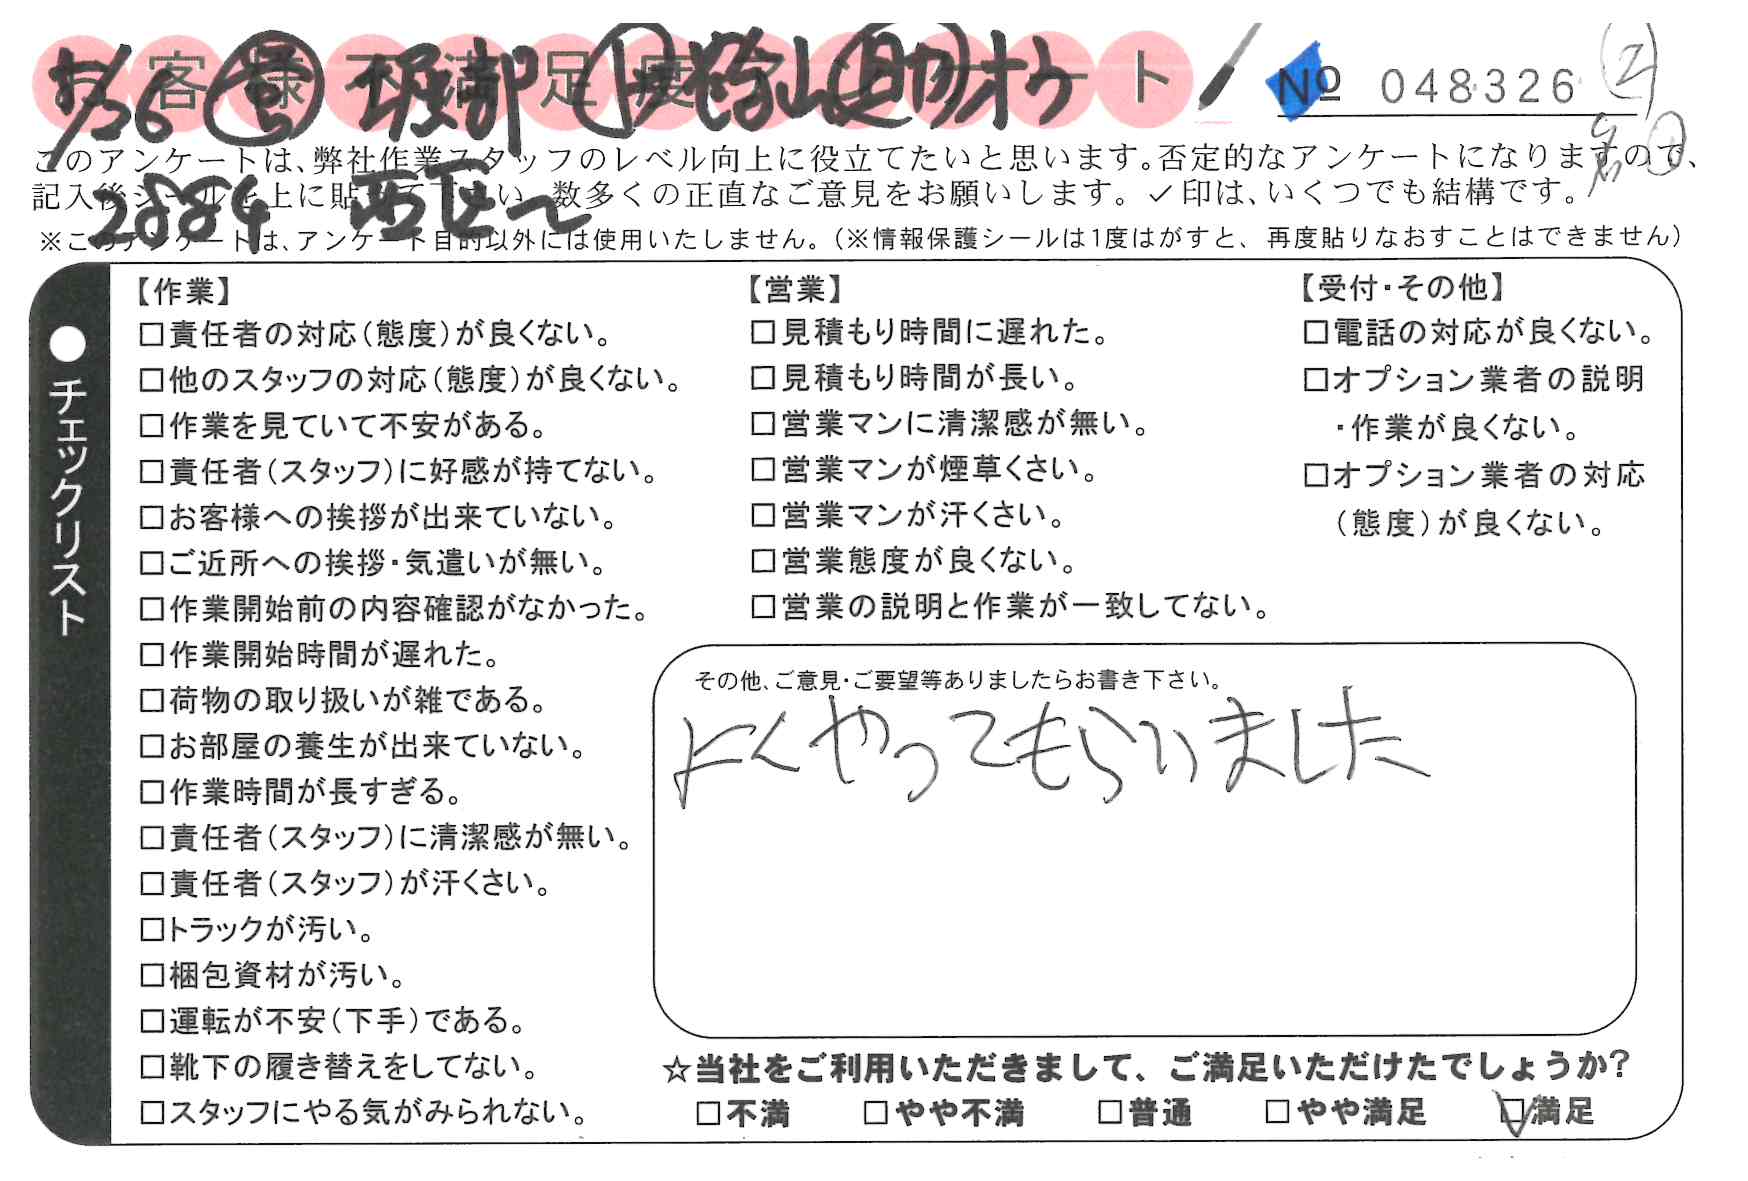 お客様不満足度アンケート
№ 048326 ②
このアンケートは、弊社作業スタッフのレベル向上に役立てたいと思います。否定的なアンケートになりますので、
記入後シールを上に貼って下さい。数多くの正直なご意見をお願いします。✓印は、いくつでも結構です。
※このアンケートは、アンケート目的以外には使用いたしません。（※情報保護シールは1度はがすと、再度貼りなおすことはできません）
●チェックリスト
【作業】
□責任者の対応（態度）が良くない。
□他のスタッフの対応（態度）が良くない。
□作業を見ていて不安がある。
□責任者（スタッフ）に好感が持てない。
□お客様への挨拶が出来ていない。
□ご近所への挨拶・気遣いが無い。
□作業開始前の内容確認がなかった。
□作業開始時間が遅れた。
□荷物の取り扱いが雑である。
□お部屋の養生が出来ていない。
□作業時間が長すぎる。
□責任者（スタッフ）に清潔感が無い。
□責任者（スタッフ）が汗くさい。
□トラックが汚い。
□梱包資材が汚い。
□運転が不安（下手）である。
□靴下の履き替えをしてない。
□スタッフにやる気がみられない。
【営業】
□見積もり時間に遅れた。
□見積もり時間が長い。
□営業マンに清潔感が無い。
□営業マンが煙草くさい。
□営業マンが汗くさい。
□営業態度が良くない。
□営業の説明と作業が一致してない。
【受付・その他】
□電話の対応が良くない。
□オプション業者の説明
・作業が良くない。
□オプション業者の対応
（態度）が良くない。
その他、ご意見・ご要望等ありましたらお書き下さい。
よくやってもらいました
☆当社をご利用いただきまして、ご満足いただけたでしょうか?
□不満 □やや不満 □普通 □やや満足 ☑満足